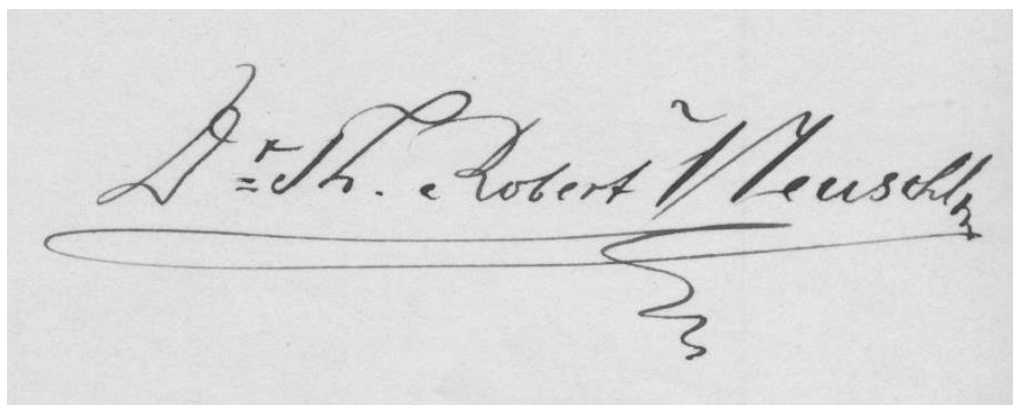 Dr. Th. Robert Neuschl